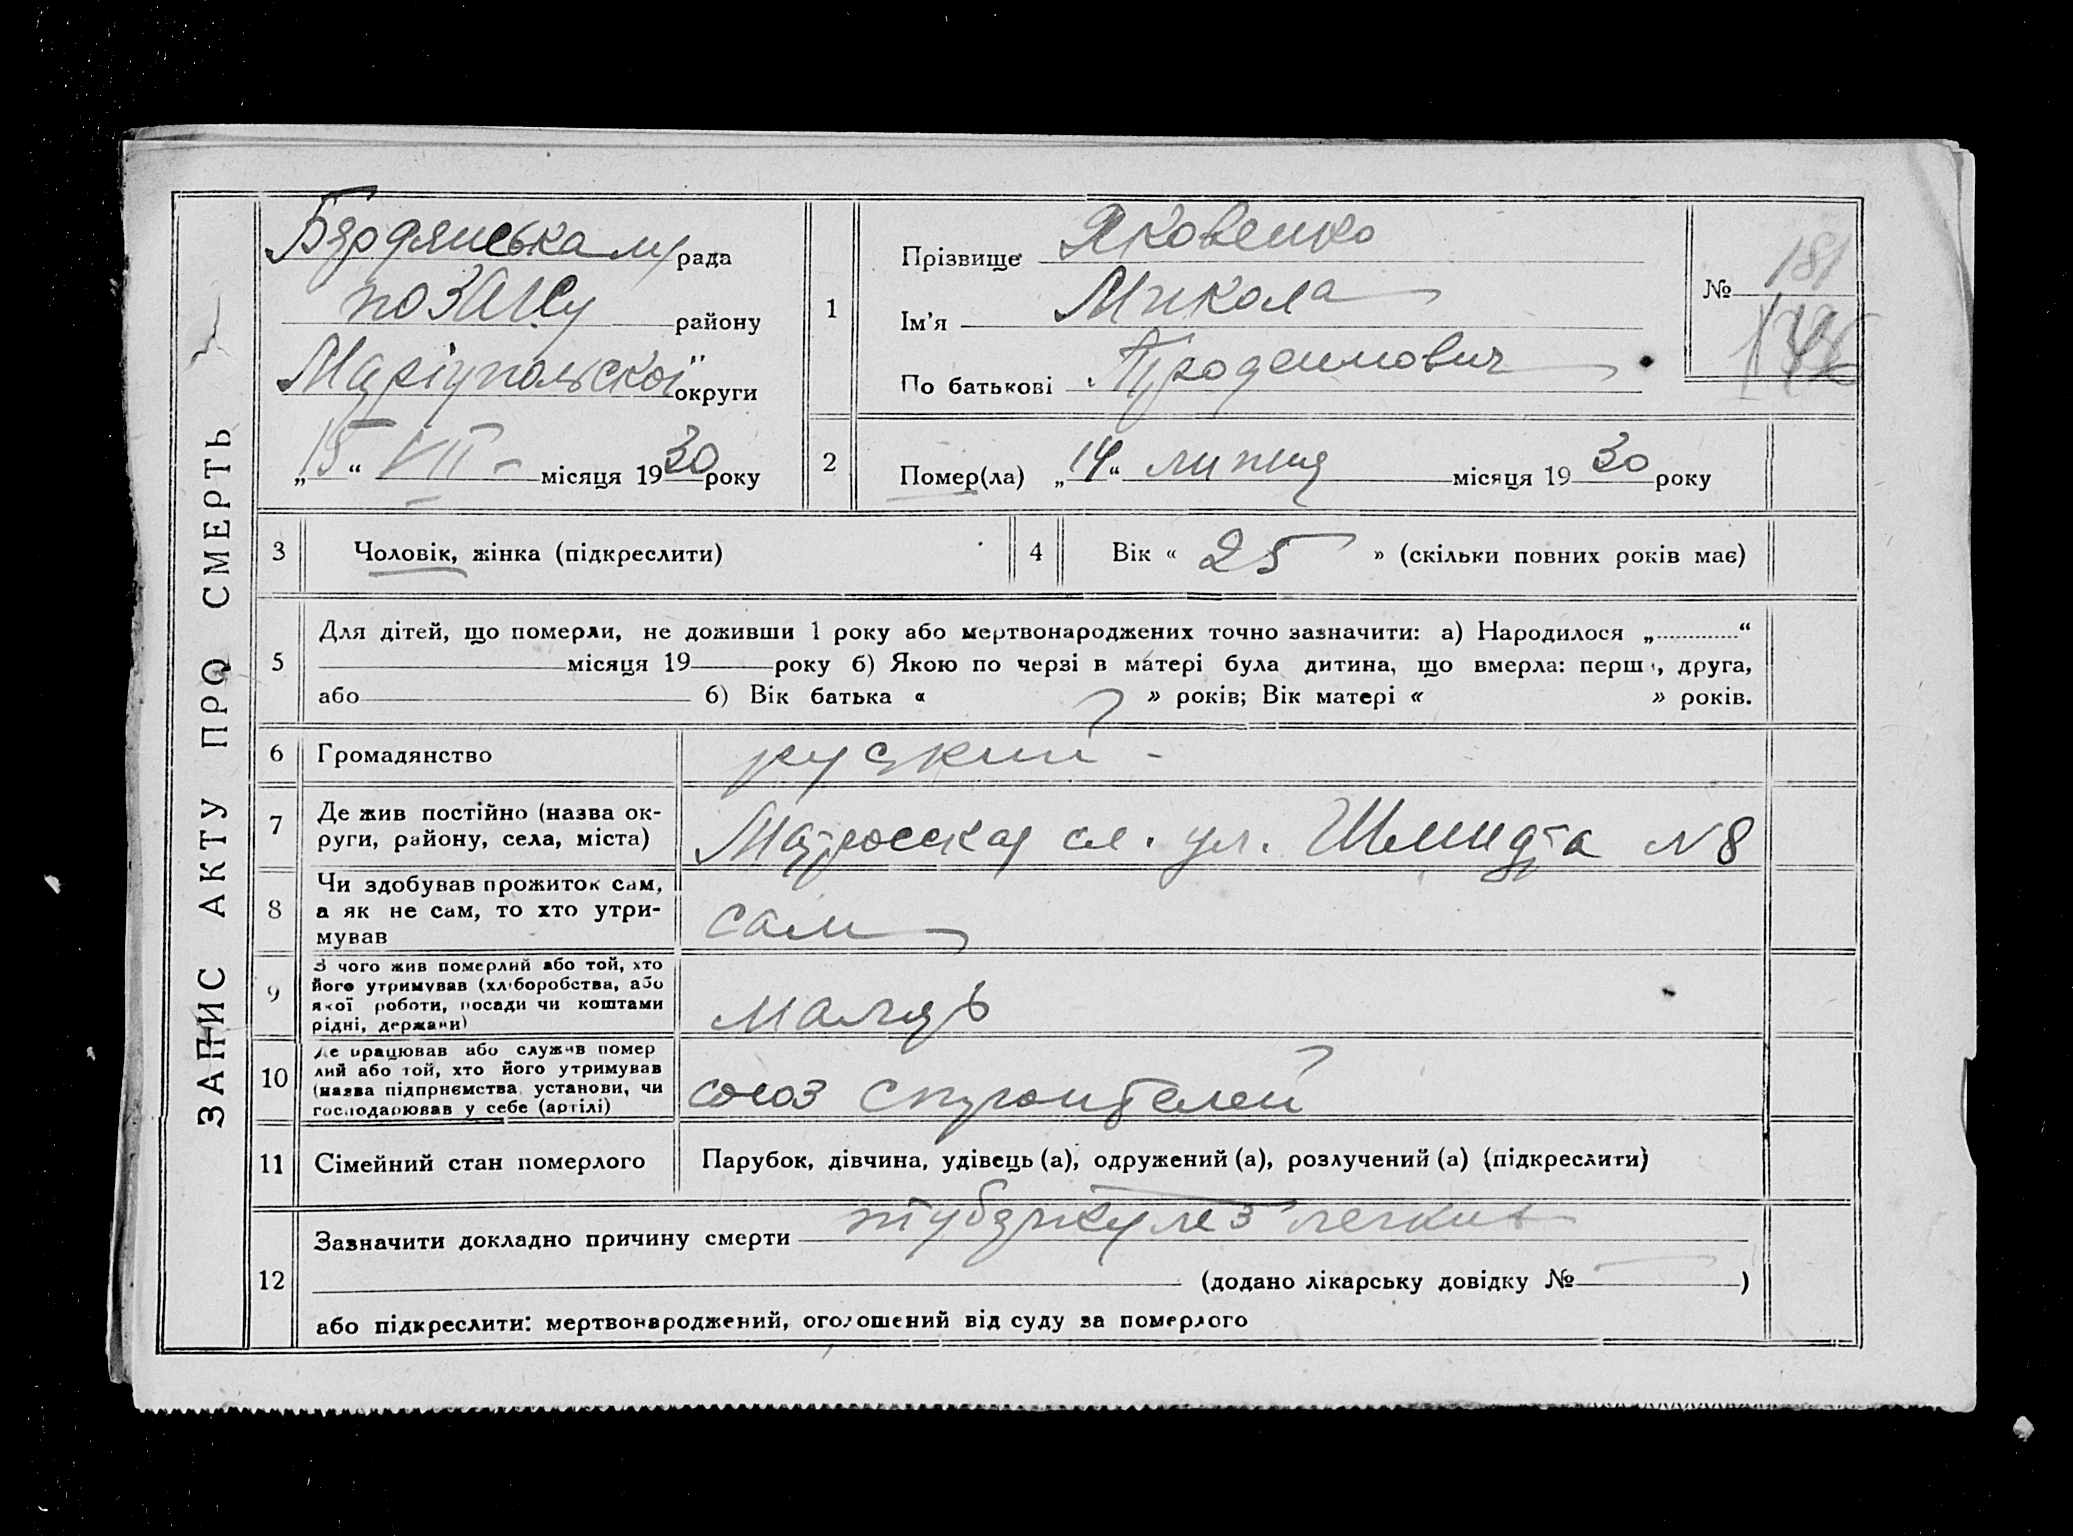 ЗАПИС АКТУ ПРО СМЕРТЬ
Бердянська м/рада
району
Маріупольскої округи
„15“ VII - місяця 1930 року
1
Прізвище Яковенко
Ім’я Микола
По батькові
№ 181
2
Помер(ла) „14“ липня місяця 1930 року
3 Чоловік, жінка (підкреслити)
4 Вік « 25 » (скільки повних років має)
5
Для дітей, що померли, не доживши 1 року або мертвонароджених точно зазначити: а) Народилося „...........“
місяця 19 року б) Якою по черзі в матері була дитина, що вмерла: перша, друга,
або б) Вік батька « » років; Вік матері « » років.
6 Громадянство руский -
7 Де жив постійно (назва ок-
руги, району, села, міста)
Матросская сл. ул. Шмидта N 8
8 Чи здобував прожиток сам,
а як не сам, то хто утри-
мував
сам
9 З чого жив померлий або той, хто
його утримував (хліборобства, або
якої роботи, посади чи коштами
рідні, держави)
маляр
10 Де працював або служив помер
лий або той, хто його утримував
(назва підприємства, установи, чи
господарював у себе (артілі)
союз строителей
11 Сімейний стан померлого Парубок, дівчина, удівець (а), одружений (а), розлучений (а) (підкреслити)
12
Зазначити докладно причину смерти туберкулез легких
(додано лікарську довідку № )
або підкреслити: мертвонароджений, оголошений від суду за померлого